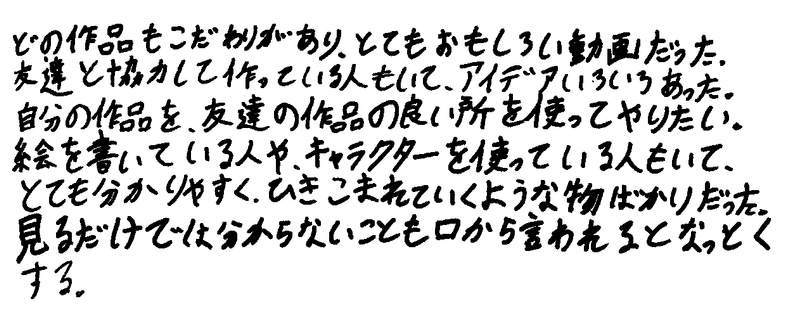 どの作品もこだわりがあり、とてもおもしろい動画だった。
友達と協力して作っている人もいて、アイデアいろいろあった。
自分の作品を、友達の作品の良い所を使ってやりたい。
絵を書いている人や、キャラクターを使っている人もいて、
とても分かりやすく、ひきこまれていくような物ばかりだった。
見るだけでは分からないことも口から言われるとなっとく
する。